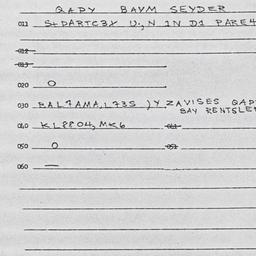 QAPY BAYM SEYDER
011 S+DARTCBY U,, N 1N D1 PARE4
012
013
020 O
030 BAL7AMA, L73S ) Y ZAVISES QAP
BAY RENTSLE
040 KL8804, MK6 041
050 O 051
060 —